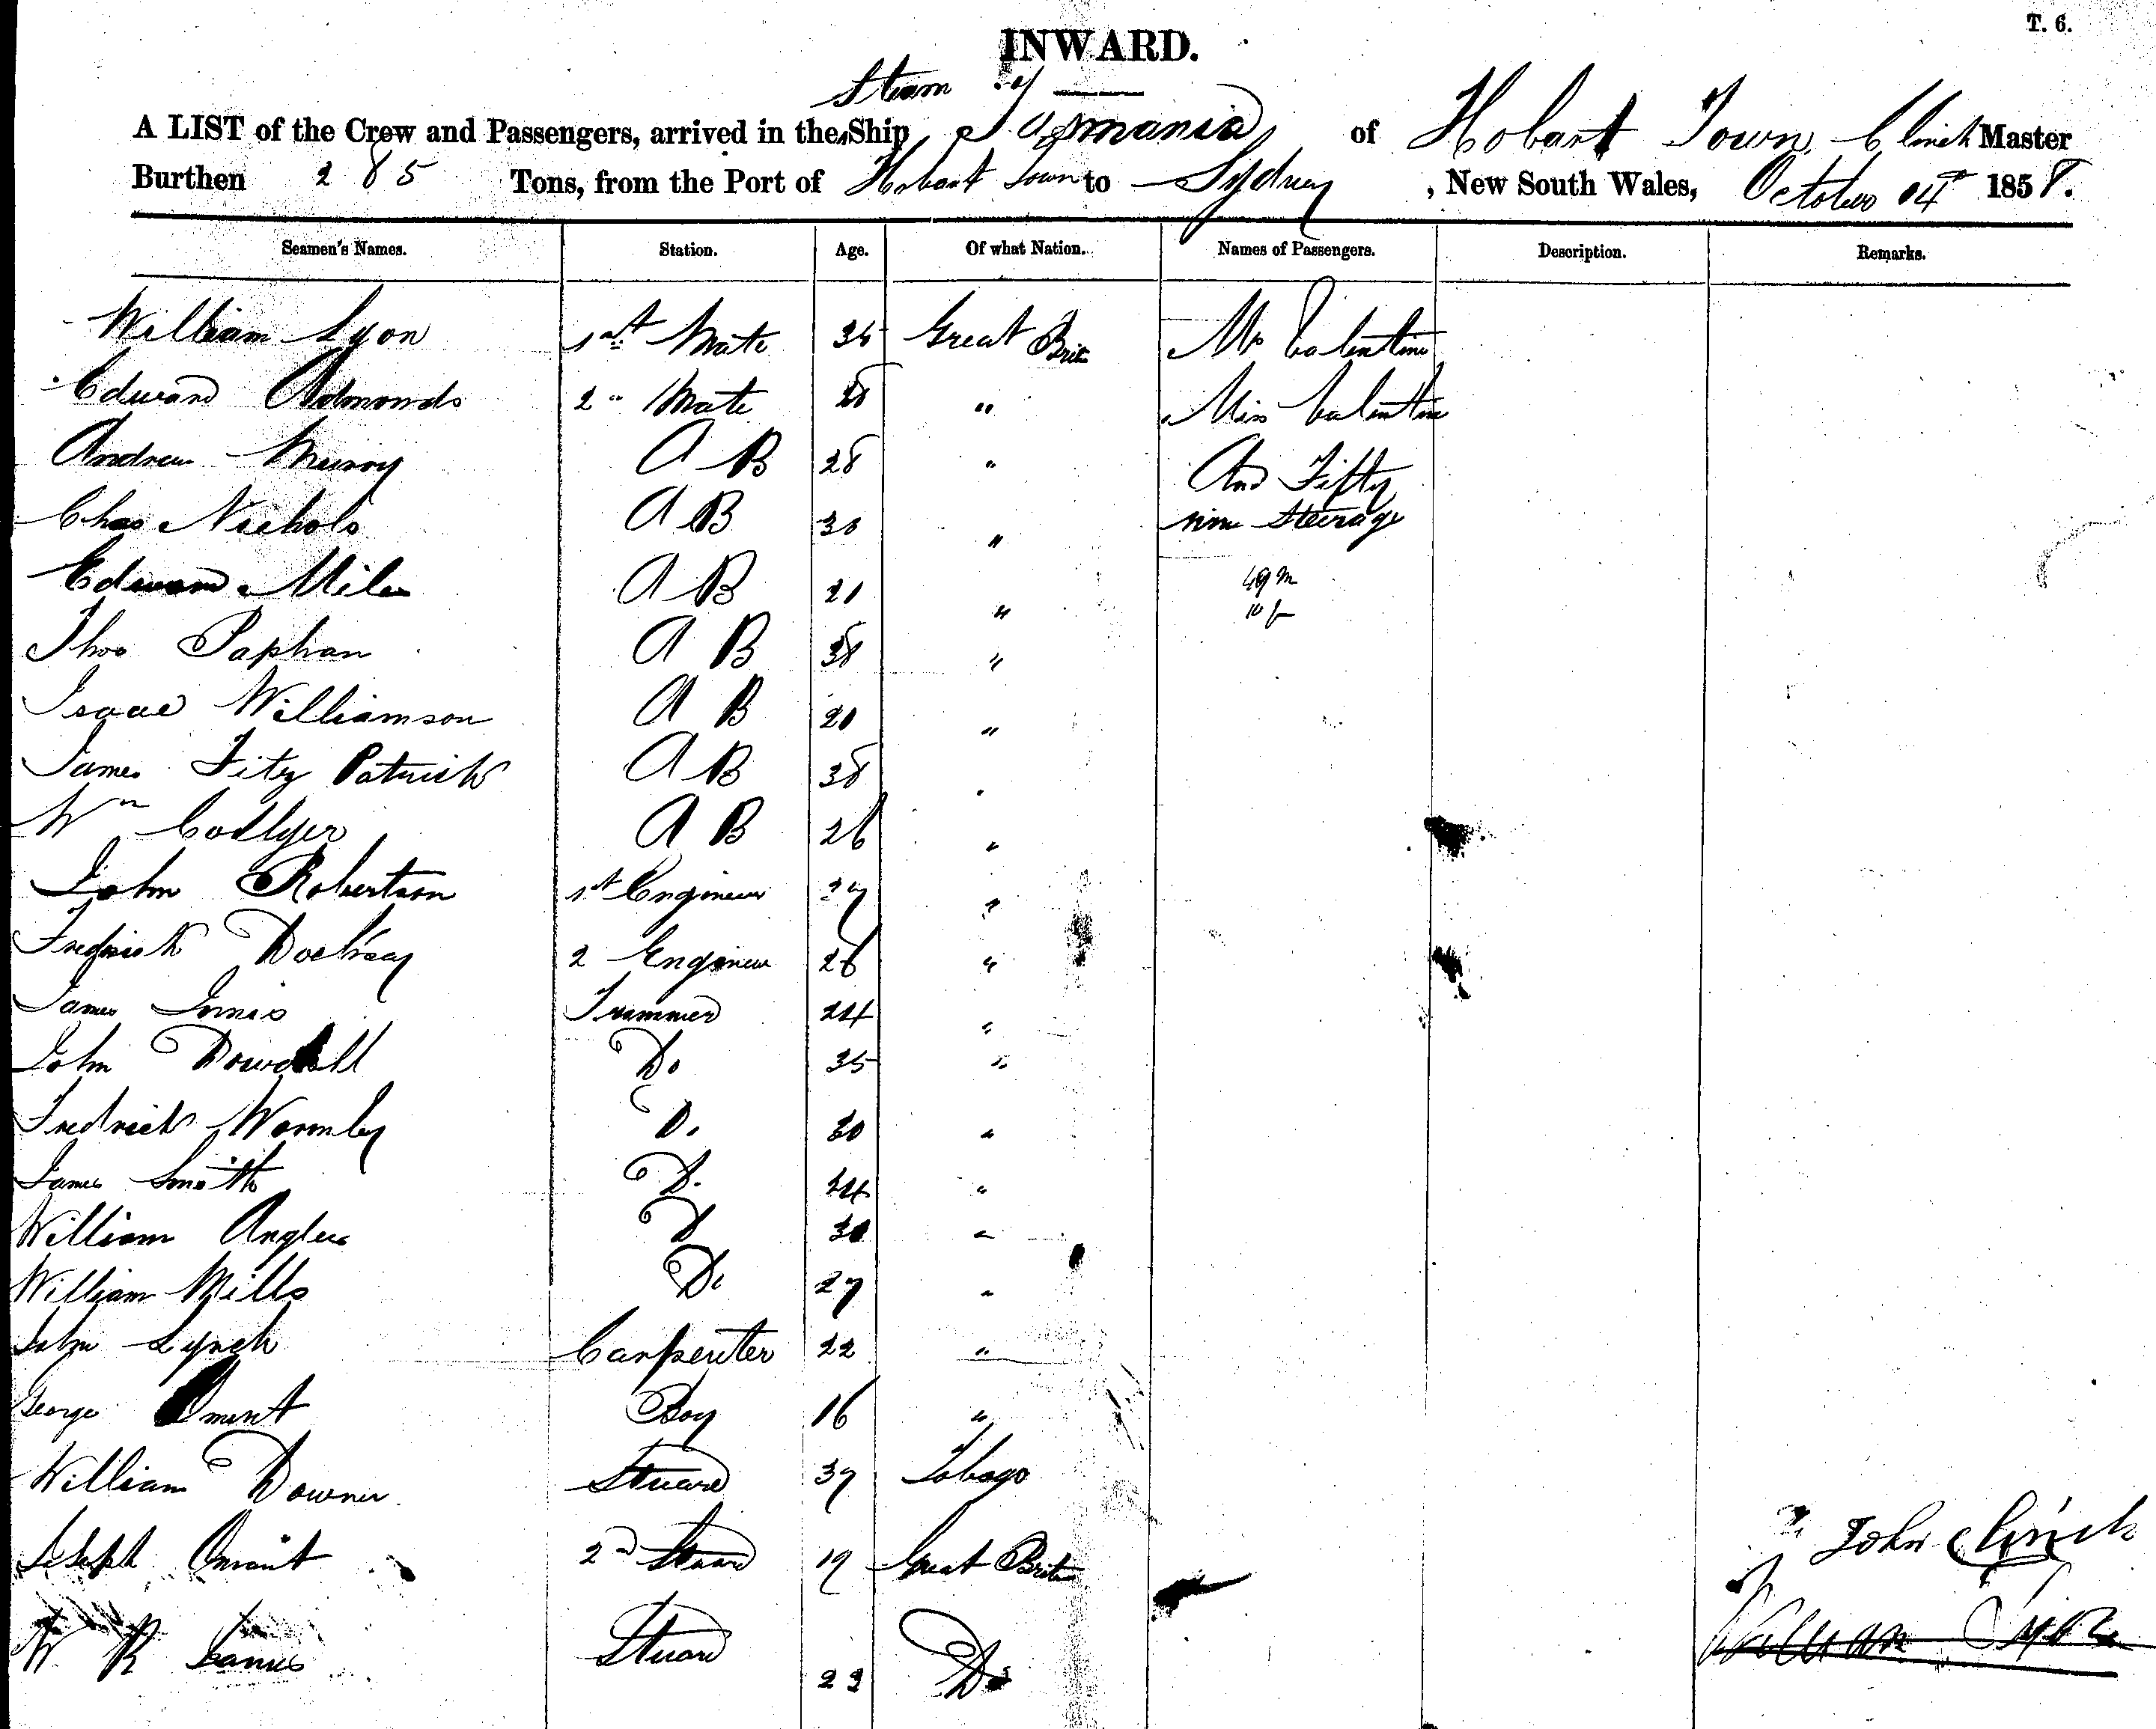 T. 6.
INWARD.
Steam
A LIST of the Crew and Passengers, arrived in the Ship Tasmania of Hobart Town, Clinch Master
Burthen 285 Tons, from the Port of Hobart Town to Sydney, New South Wales, October 04th 1858.
Seamen's Names. Station. Age. Of what Nation. Names of Passengers. Description. Remarks.
William Lyon 1st Mate 35 Great Brit Mr Valentine
Edward Admonds 2" Mate 28 " Miss Valentine
Andrew Murray A B 28 " And Fifty
Chas Nichols A B 30 " nine Steerage
Edward Miles A B 21 " 49 m
10 f
Thos Paphan A B 38 "
Isaac Williamson A B 20 "
James Fitz Patrick A B 38 "
Wm Collyer A B 26 "
John Robertson 1st Engineer 37 "
Fredrick Dockray 2 Engineer 26 "
James Innis Trimmer 24 "
John Dowdall Do 35 "
Fredrick Wormley Do 30 "
James Smith Do 24 "
William Angles D 30 "
William Mills Do 27 "
John Lynch Carpenter 22 "
George Oment Boy 16 "
William Downer Stuard 37 Tobago
Joseph Oment 2nd Stuard 19 Great Brit
John Clinch
W R James Stuard 23 Do
William Lyon